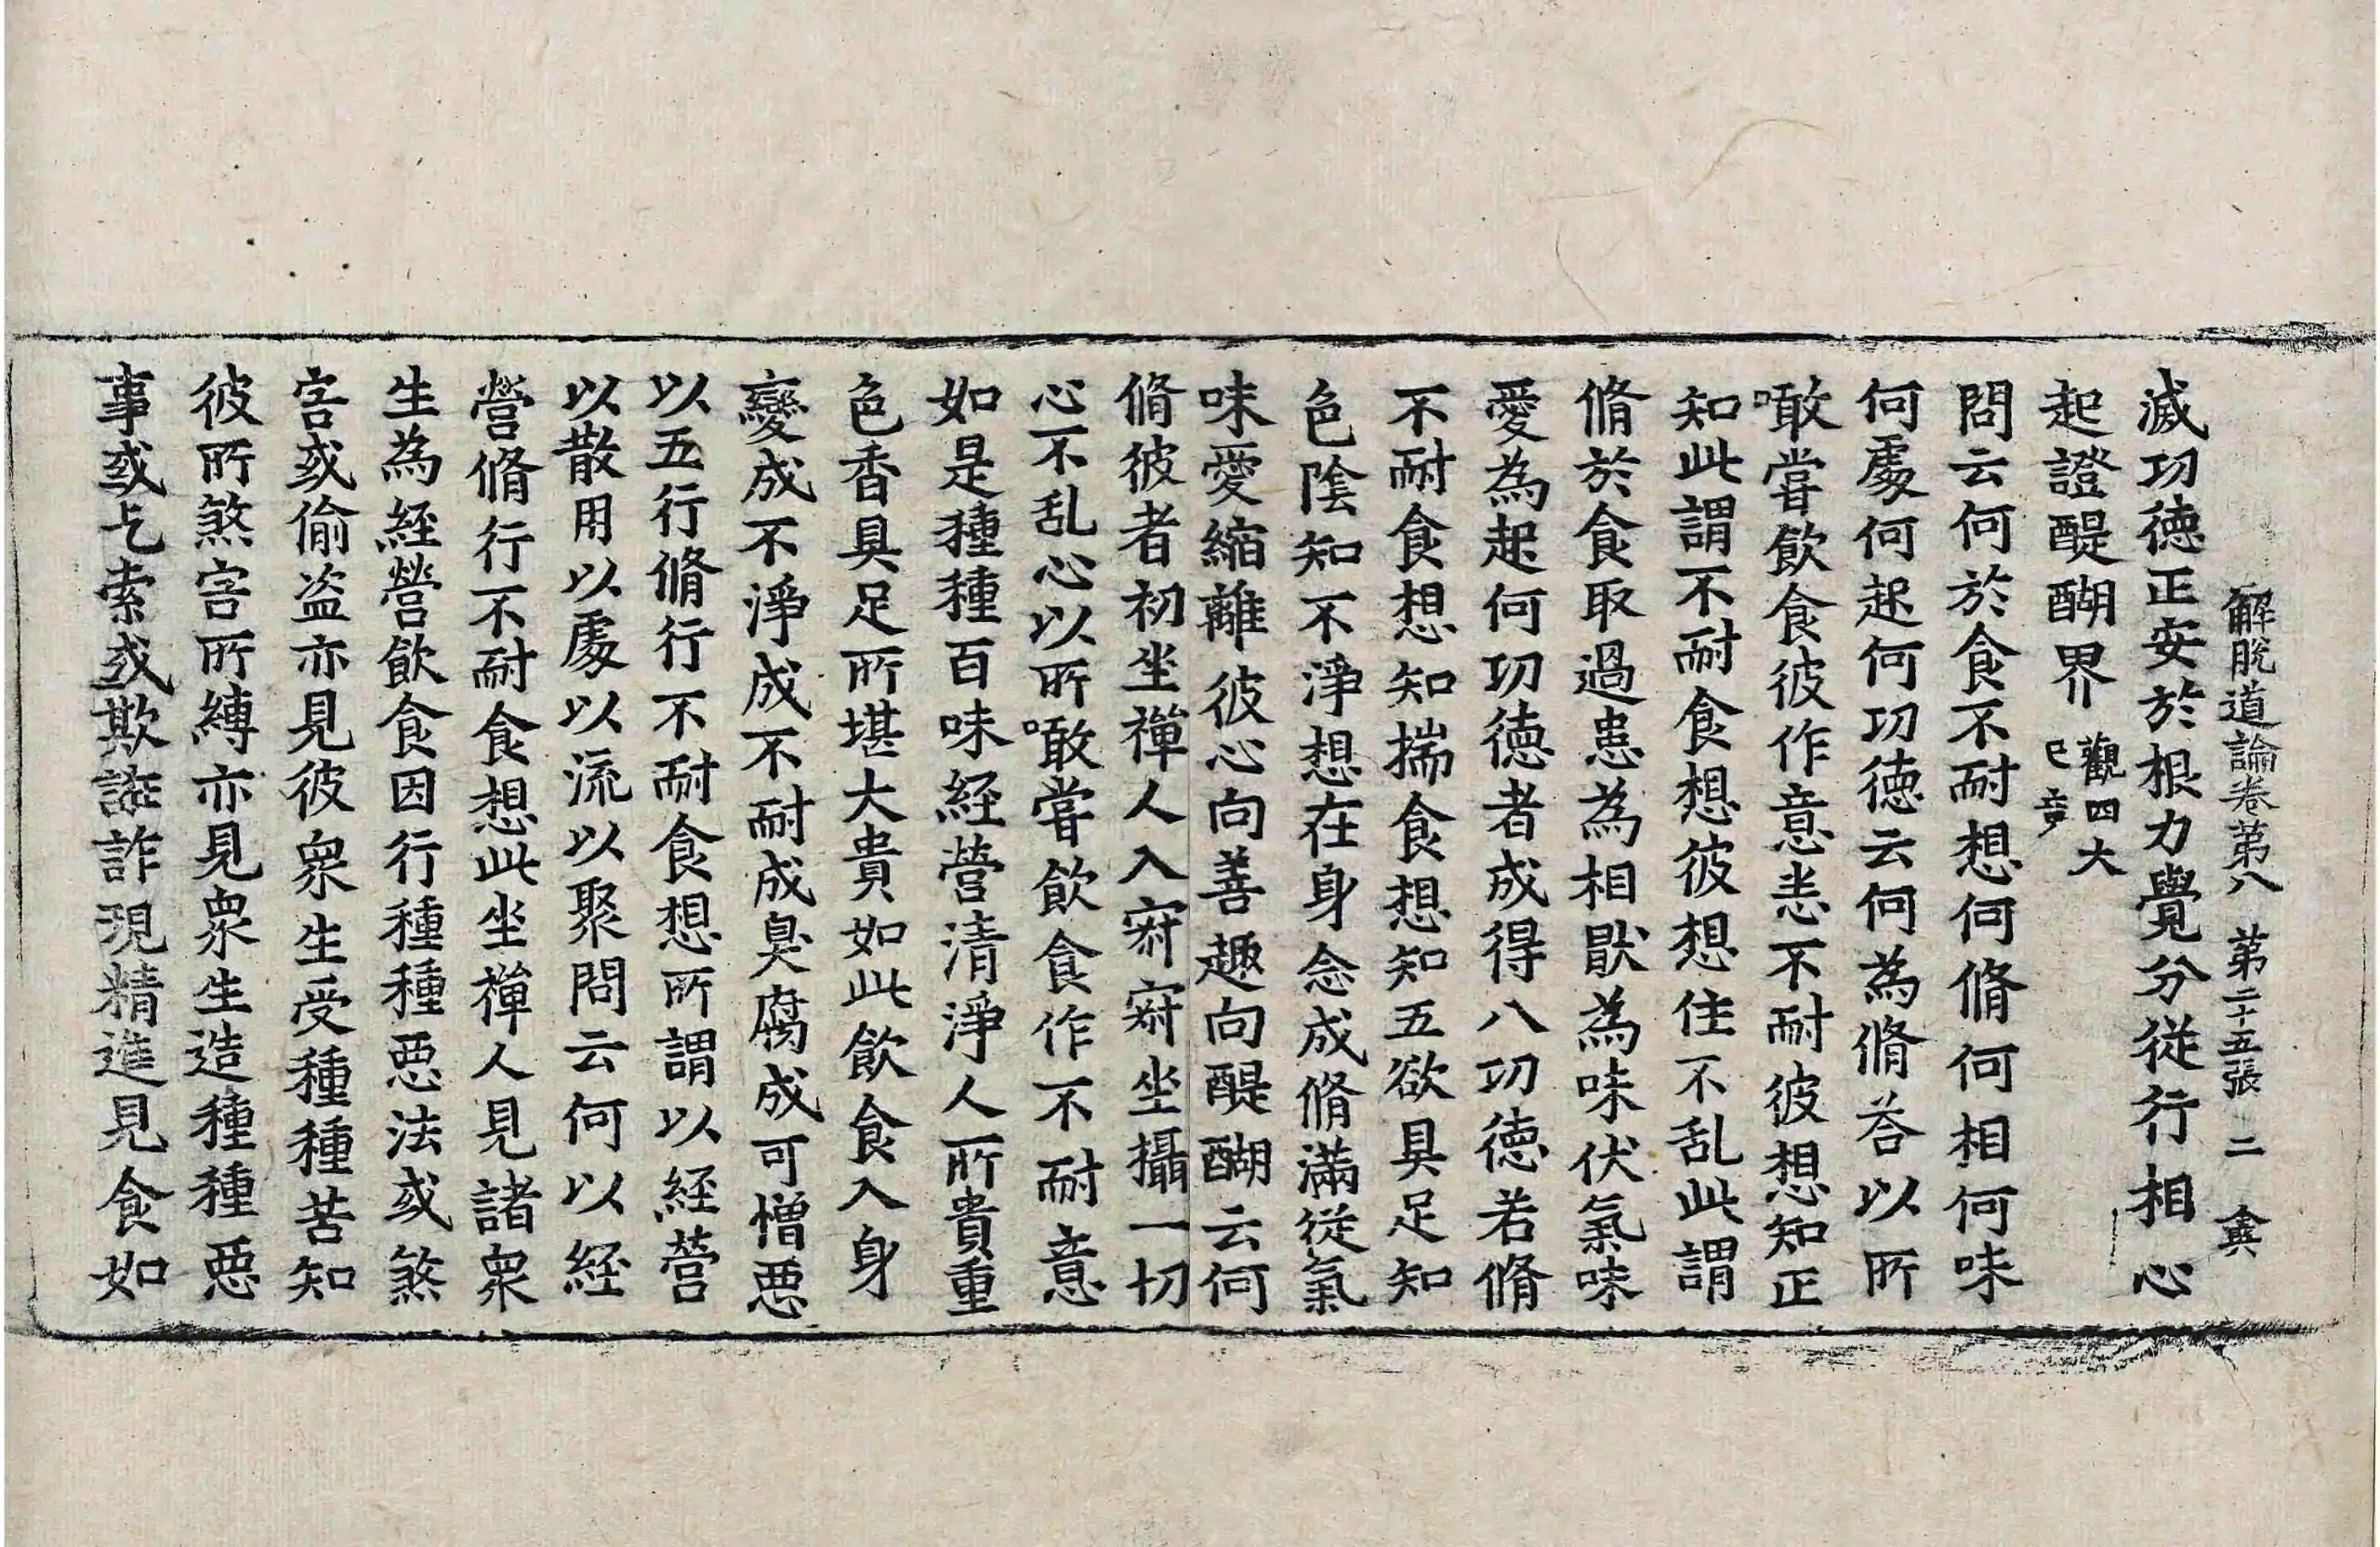 解脫道論卷第八 第二十五張 二 㝠
滅功德正安於根力覺分從行相心
起證醍醐界 觀四大
已竟
問云何於食不耐想何脩何相何味
何處何起何功德云何為脩荅以所
噉甞飲食彼作意恚不耐彼想知正
知此謂不耐食想彼想住不乱此謂
脩於食取過患為相猒為味伏氣味
愛為起何功德者成得八功德若脩
不耐食想知揣食想知五欲具足知
色陰知不淨想在身念成脩滿從氣
味愛縮離彼心向善趣向醍醐云何
脩彼者初坐禪人入寂寂坐攝一切
心不乱心以所噉甞飲食作不耐意
如是種種百味經營清淨人所貴重
色香具足所堪大貴如此飲食入身
變成不淨成不耐成臭腐成可憎惡
以五行脩行不耐食想所謂以經營
以散用以處以流以聚問云何以經
營脩行不耐食想此坐禪人見諸衆
生為經營飲食因行種種惡法或煞
害或偷盗亦見彼衆生受種種苦知
彼所煞害所縛亦見衆生造種種惡
事或乞索或欺誑詐現精進見食如